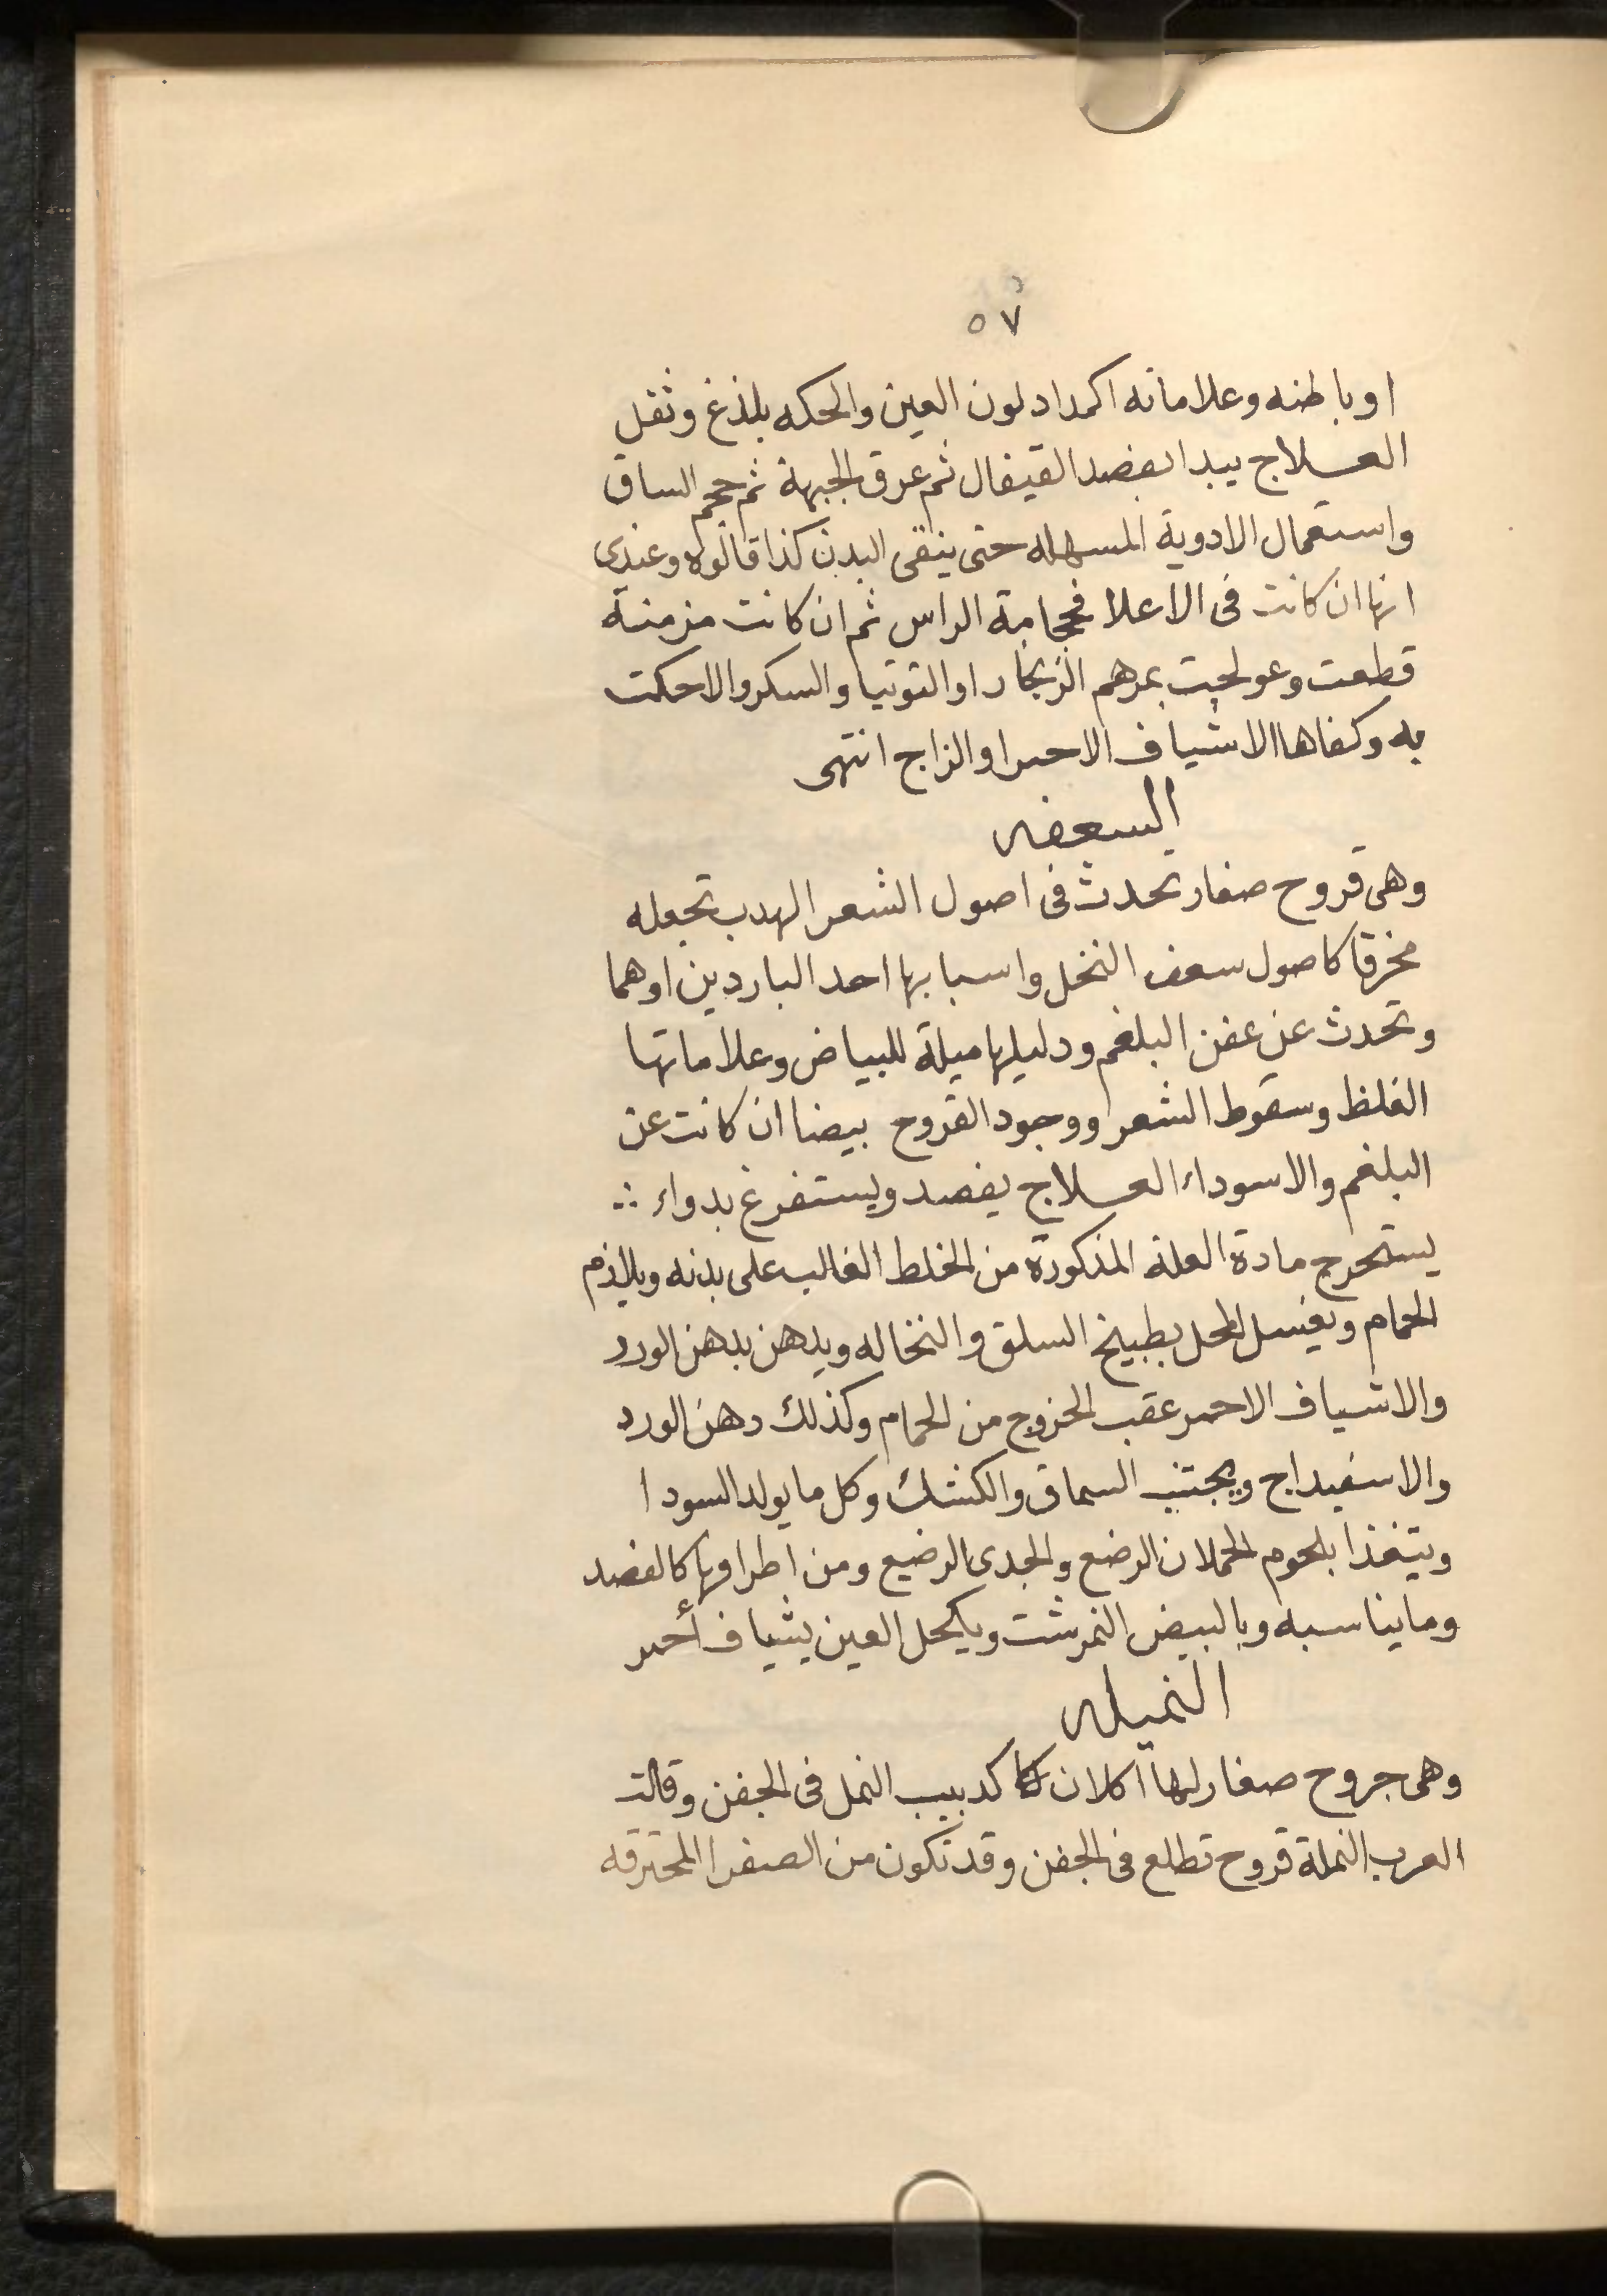 ٥٧
او باطنه وعلاماته اكمداد لون العين والحكه بلذغ وثقل
العـلاج يبدا بفصد القيفال ثم عرق الجبهة ثم حجم الساق
واستعمال الادوية المسهله حتى ينقى البدن كذا قالوه وعندى
انها ان كانت فى الاعلا فحجامة الراس ثم ان كانت مزمنة
قطعت وعولجت بمرهم الزنجار او التوتيا والسكر والا حكت
به وكفاها الاشياف الاحمر او الزاج انتهى
السعفه
وهى قروح صغار تحدث فى اصول الشعر الهدب تجعله
مخرقا كاصول سعف النخل واسبابها احد الباردين او هما
وتحدث عن عفن البلغم ودليلها ميلة للبياض وعلاماتها
الغلظ وسقوط الشعر ووجود القروح بيضا ان كانت عن
البلغم والا سوداء العـلاج يفصد ويستفرغ بدواء ∴
يستخرج مادة العلة المذكورة من الخلط الغالب على بدنه ويلازم
الحمام ويغسل المحل بطبيخ السلق والنخاله ويدهن بدهن الورد
والاشياف الاحمر عقب الخروج من الحمام وكذلك دهن الورد
والاسفيداج ويجتنب السماق والكشك وكل ما يولد السودا
ويتغذا بلحوم الحملان الرضع والجدى الرضيع ومن اطرافها كالفصد
وما يناسبه وبالبيض النمرشت ويكحل العين بشياف أحمر
النميله
وهى جروح صغار لها اكلان كدبيب النمل فى الجفن وقالت
العرب النملة قروح تطلع فى الجفن وقد تكون من الصفرا المحترقه